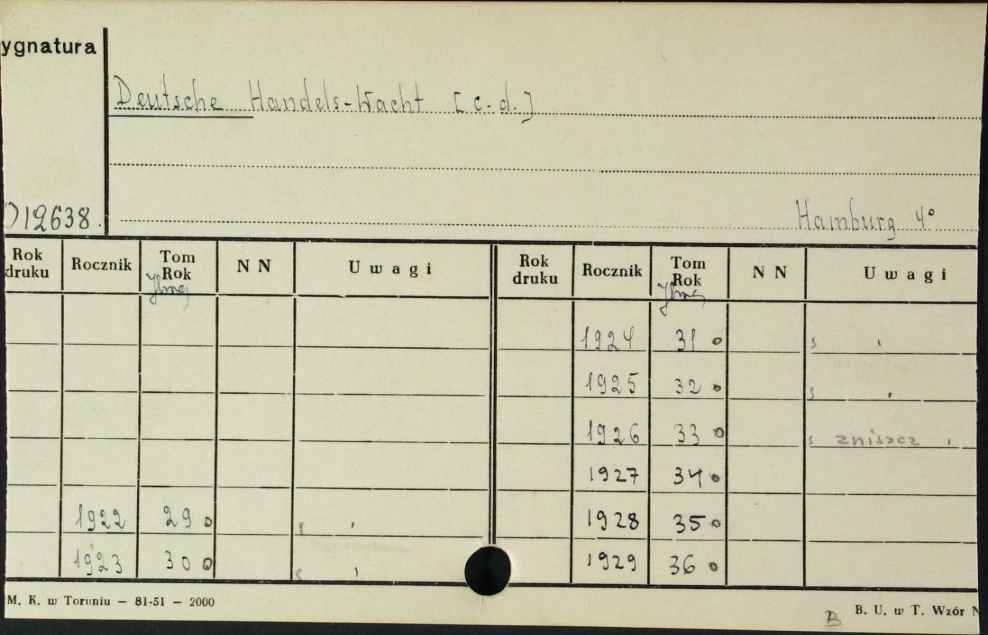 ygnatura
Deutsche Handels-Wacht [c.d.]
Hamburg 4°
012638.
Rok druku Rocznik Tom Rok NN Uwagi Rok druku Rocznik Tom Rok NN Uwagi
Jhrg Jhrg
1924 31 o
1925 32 o
1926 33 o zniszcz
1927 34 o
1922 29 o 1928 35 o
1923 30 o 1929 36 o
M. K. w Toruniu — 81-51 — 2000
B B. U. w T. Wzór N